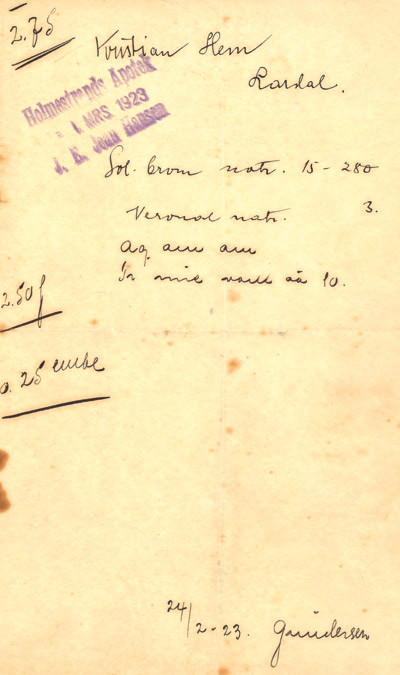 2.75
Kristian Hem
Lardal.
Holmestrands Apotek
1. MRS 1923
J. E. Jean Hansen
Sol. brom natr. 15 - 280
Veronal natr. 3.
Aq am am
Tr nuc vom āā 10.
2.50
0.25 embl
24/2-23. Gundersen